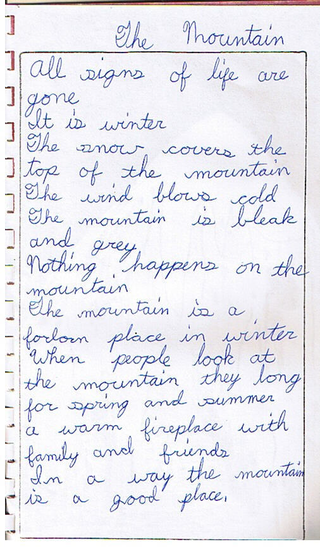 The Mountain
All signs of life are
gone
It is winter
The snow covers the
top of the mountain
The wind blows cold
The mountain is bleak
and grey
Nothing happens on the
mountain
The mountain is a
forlorn place in winter
When people look at
the mountain they long
for spring and summer
a warm fireplace with
family and friends
In a way the mountain
is a good place.